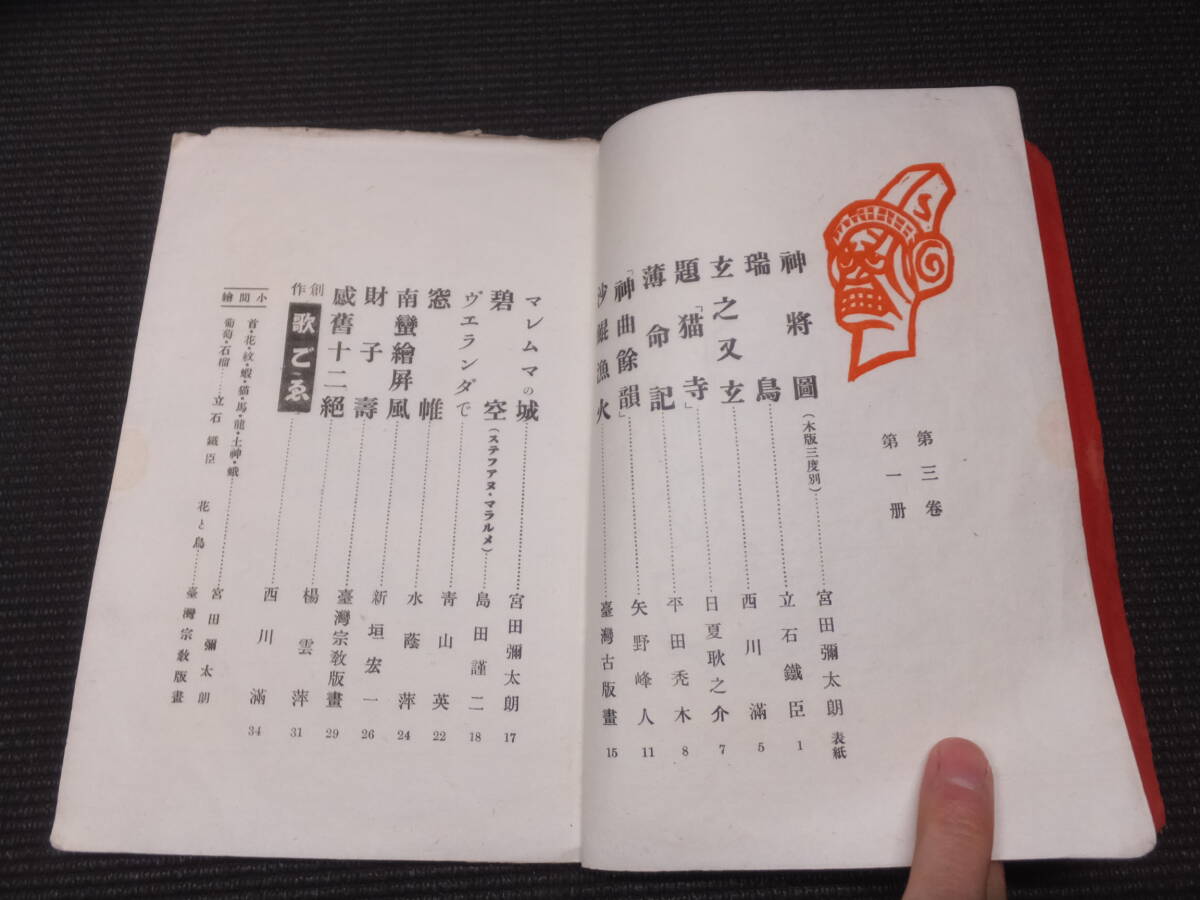 第三卷
第一册
神將圖（木版三度別）……宮田彌太朗 表紙
瑞鳥……立石鐵臣 1
玄之又玄……西川滿 5
題「猫寺」……日夏耿之介 7
薄命記……平田禿木 8
「神曲餘韻」……矢野峰人 11
沙鯤漁火……臺灣古版畫 15
マレムマの城……宮田彌太朗 17
碧空（ステフアヌ・マラルメ）……島田謹二 18
ヴエランダで……青山英 22
窓帷……水蔭萍 24
南蠻繪屛風……新垣宏一 26
財子壽……臺灣宗敎版畫 29
感舊十二絕……楊雲萍 31
創作 歌ごゑ……西川滿 34
小間繪
首・花・紋・蝦・猫・馬・龍・土神・蛾……宮田彌太朗
葡萄・石榴……立石鐵臣 花と鳥……臺灣宗敎版畫